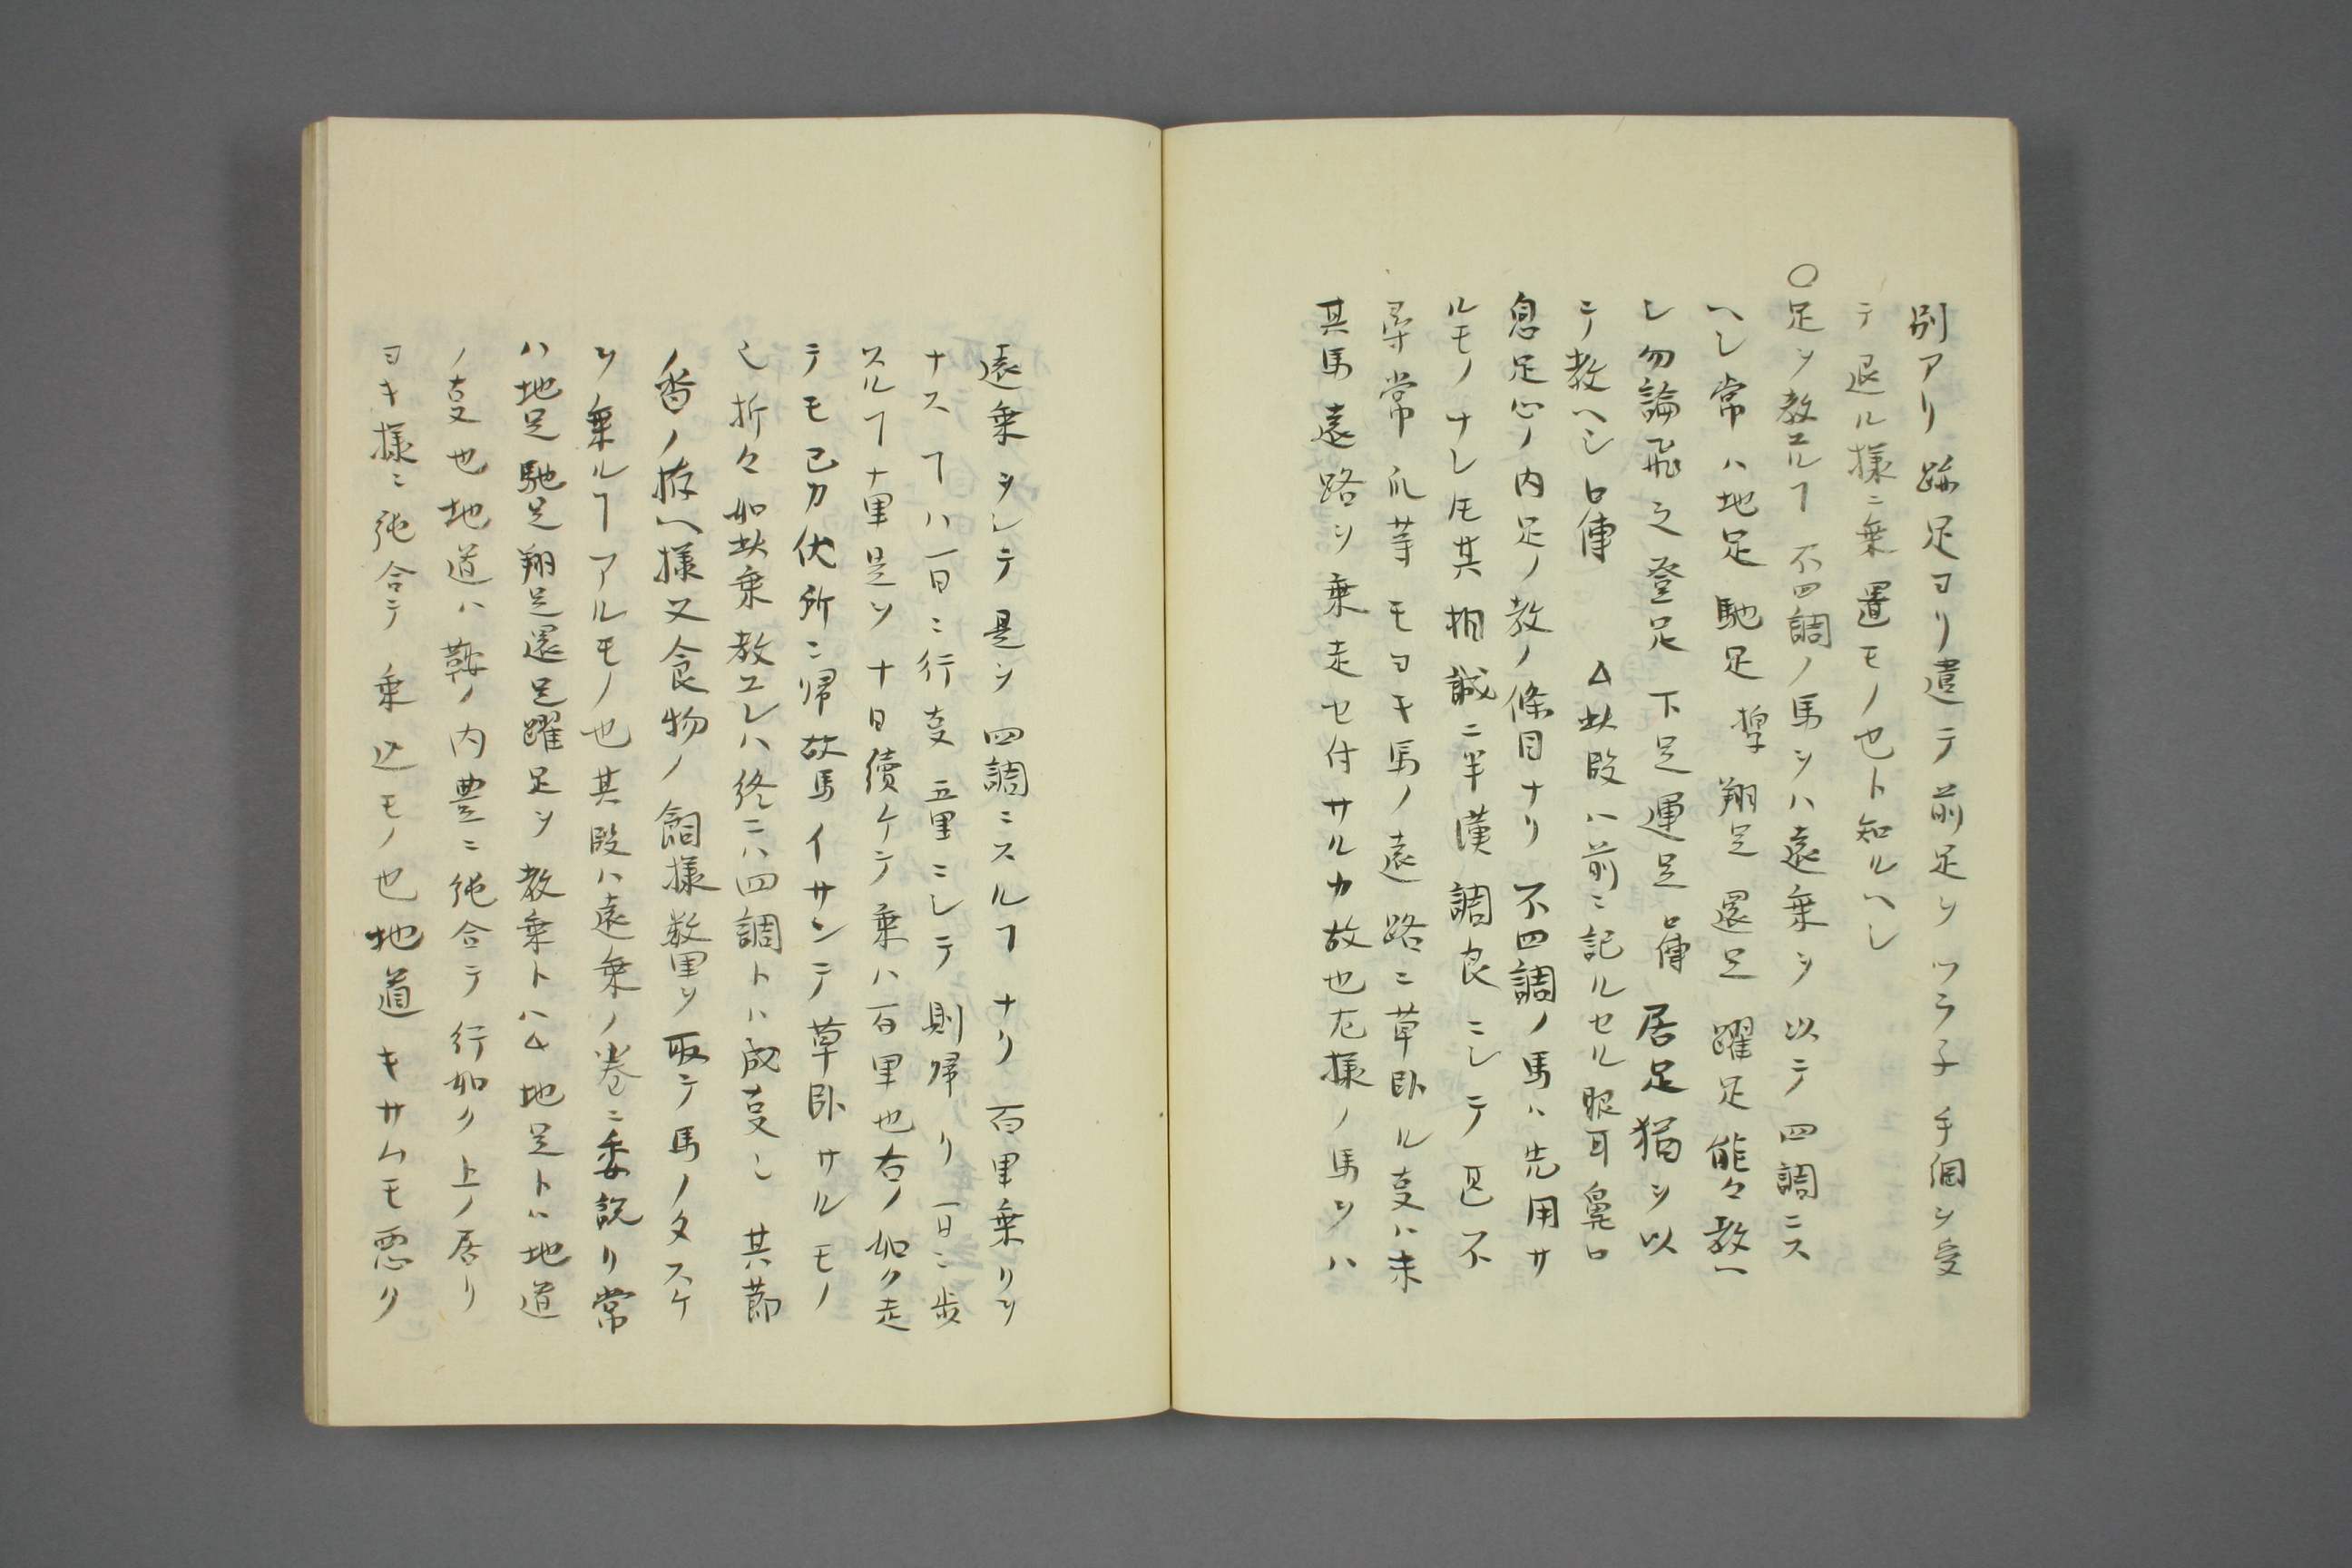 別アリ跡足ヨリ遣テ前足ヲツラ子手綱ヲ受
テ退ル様ニ乗置モノ也ト知ルヘシ
〇足ヲ教エルヿ不四調ノ馬ヲハ遠乗ヲ以テ四調ニス
ヘシ常ハ地足馳足翔足還足躍足能々教ヘ
シ勿論飛之登足下足運足口傳居足猶ヲ以
テ教ヘシ口傳 △此段ハ前ニ記ルセル眼耳鼻口
息足心ノ内足ノ教ノ條目ナリ不四調ノ馬ハ先用サ
ルモノナレ𪜈其相誠ニ半漢調良ニシテ不
尋常爪芋モヨキ馬ノ遠路ニ草臥ル叓ハ未
其馬遠路ヲ乗走セ付サルカ故也左様ノ馬ヲハ
遠乗ヲシテ是ヲ四調ニスルヿナリ百里乗リヲ
ナスヿハ一日ニ行叓五里ニシテ則帰リ一日ニ歩
スルヿ十里是ヲ十日續ケテ乗ハ百里也右ノ如ク走
テモ己カ伏所ニ帰故馬イサンテ草臥サルモノ
也折々如此乗教エレハ終ニハ四調トハ成叓也其節
ノ沓ノ拵ヘ様又食物ノ飼様数里ヲ取テ馬ノタスケ
ヲ乗ルヿアルモノ也其段ハ遠乗ノ巻ニ委説リ常
ハ地足馳足翔足還足躍足ヲ教乗トハ△地足トハ地道
ノ叓也地道ハ鞍ノ内豊ニ乗合テ行如ク上ノ居リ
ヨキ様ニ合テ乗込モノ也地道キサムモ悪ク